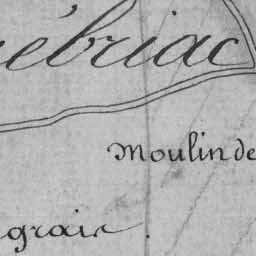 rébriac
Moulin de
grais